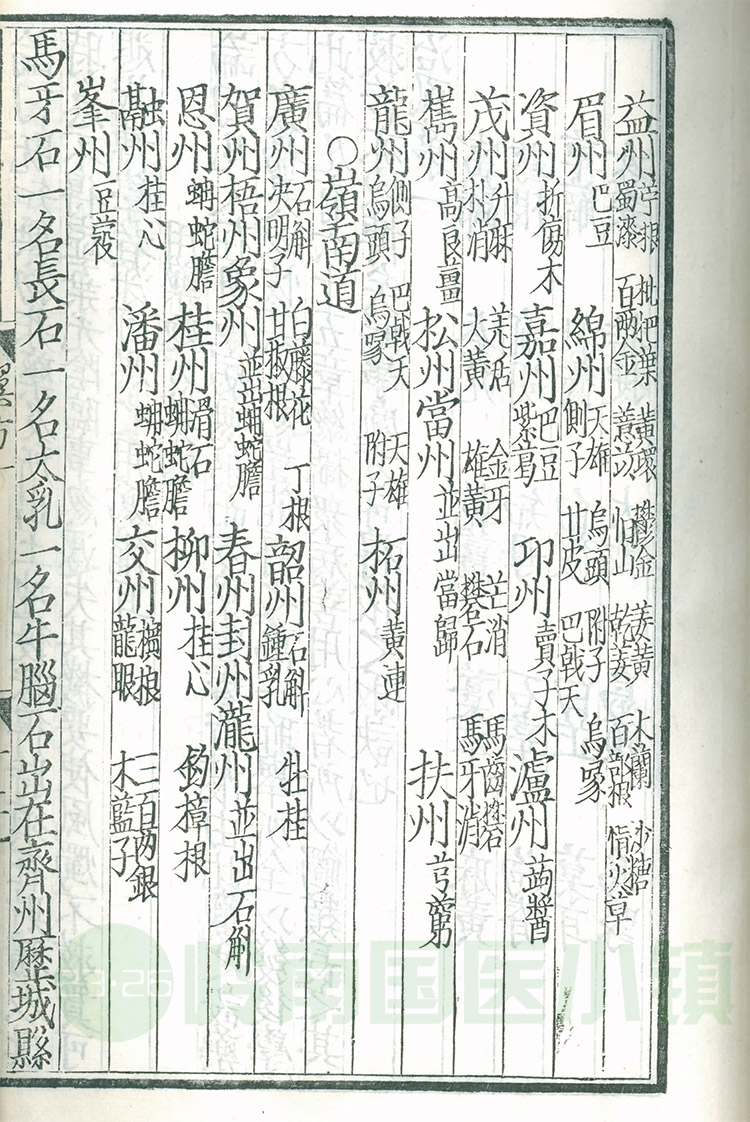 益州苧根蜀漆 枇杷葉百兩金 黃環薏苡 鬱金恒山 姜黃乾姜 木蘭百部根 沙糖慎火草
眉州巴豆 綿州天雄側子 烏頭甘皮 附子巴戟天 烏喙
資州折傷木 嘉州巴豆紫葛 邛州賣子木 瀘州蒟醬
茂州升麻朴消 羌活大黃 金牙雄黃 芒消礬石 馬齒礬馬牙消
巂州高良薑 松州當州並出當歸 扶州芎藭
龍州側子烏頭 巴戟天烏喙 天雄附子 柘州黃連
○嶺南道
廣州石斛決明子 白藤花甘椒根 丁根 韶州石斛鍾乳 牡桂
賀州梧州象州並出蚺蛇膽 春州封州瀧州並出石斛
恩州蚺蛇膽 桂州滑石蚺蛇膽 柳州桂心 鈎樟根
融州桂心 潘州蚺蛇膽 交州檳榔龍眼 三百兩銀木藍子
峯州豆蔻
馬牙石一名長石一名大乳一名牛腦石出在齊州歷城縣
翼方一
岭南国医小镇